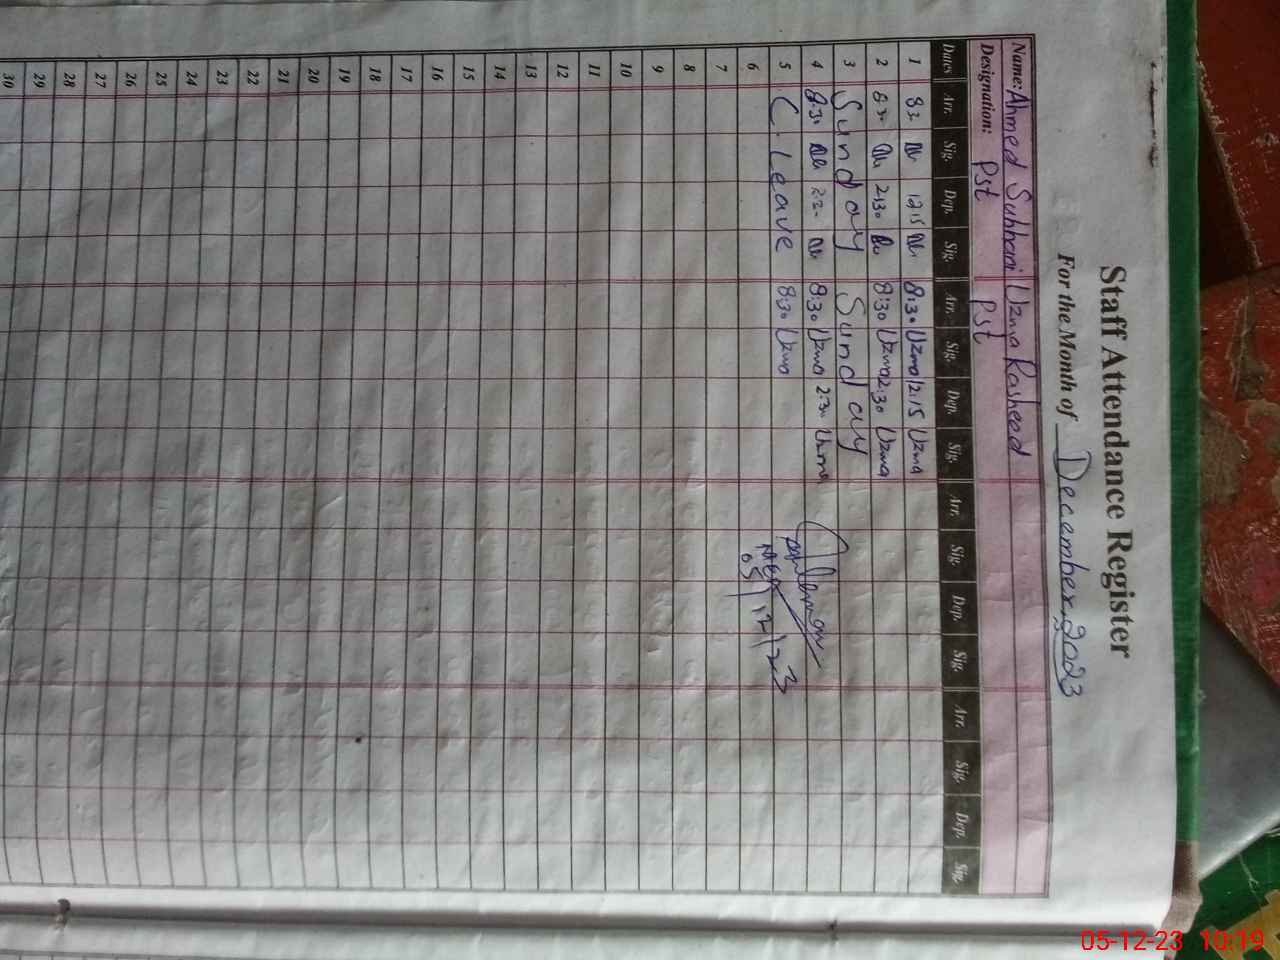 Staff Attendance Register
For the Month of December, 2023
Name: Ahmed Subhani Uzma Rasheed
Designation: Pst Pst
Dates Arr. Sig. Dep. Sig. Arr. Sig. Dep. Sig. Arr. Sig. Dep. Sig. Arr. Sig. Dep. Sig.
1 12:15 8:30 Uzma 12:15 Uzma
2 8:30 2:30 8:30 Uzma 2:30 Uzma
3 Sunday Sunday
4 8:30 8:30 Uzma 2:30 Uzma
5 C. Leave 8:30 Uzma
6 05/12/23
7
8
9
10
11
12
13
14
15
16
17
18
19
20
21
22
23
24
25
26
27
28
29
30
05-12-23 10:19